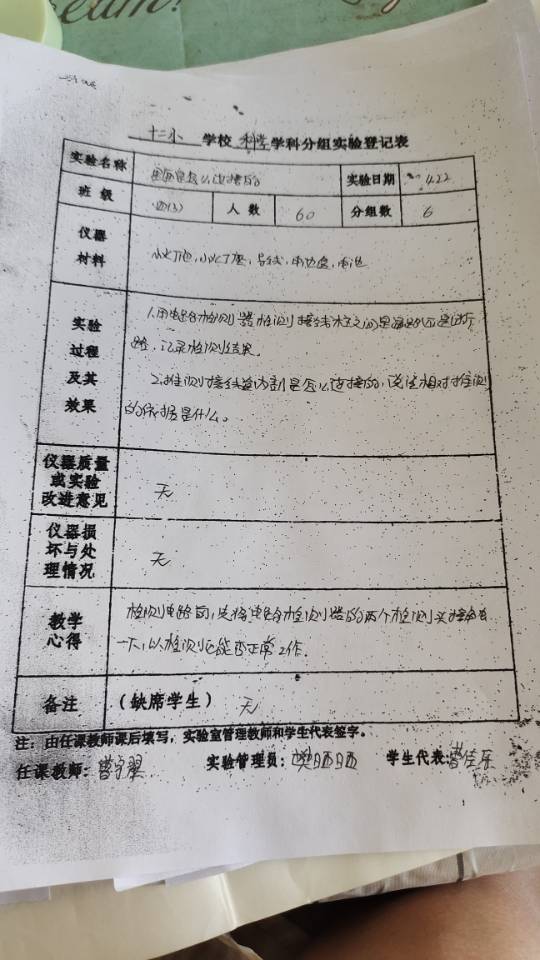 eam!
十二小 学校 科学 学科分组实验登记表
实验名称 电路是怎么连接的 实验日期 4.22
班级 四(3) 人数 60 分组数 6
仪器
材料
小灯泡,小灯座,导线,电池盒,电池
实验
过程
及其
效果
1.用电路检测器检测接线柱之间是通路还是断
路,记录检测结果。
2.推测接线盒内部是怎么连接的,说说相对推测
的依据是什么。
仪器质量
或实验
改进意见
无
仪器损
坏与处
理情况
无
教学
心得
检测电路前,先将电路检测器的两个检测头接触
一下,以检测它能否正常工作。
备注 (缺席学生) 无
注:由任课教师课后填写,实验室管理教师和学生代表签字。
任课教师: 实验管理员: 学生代表: